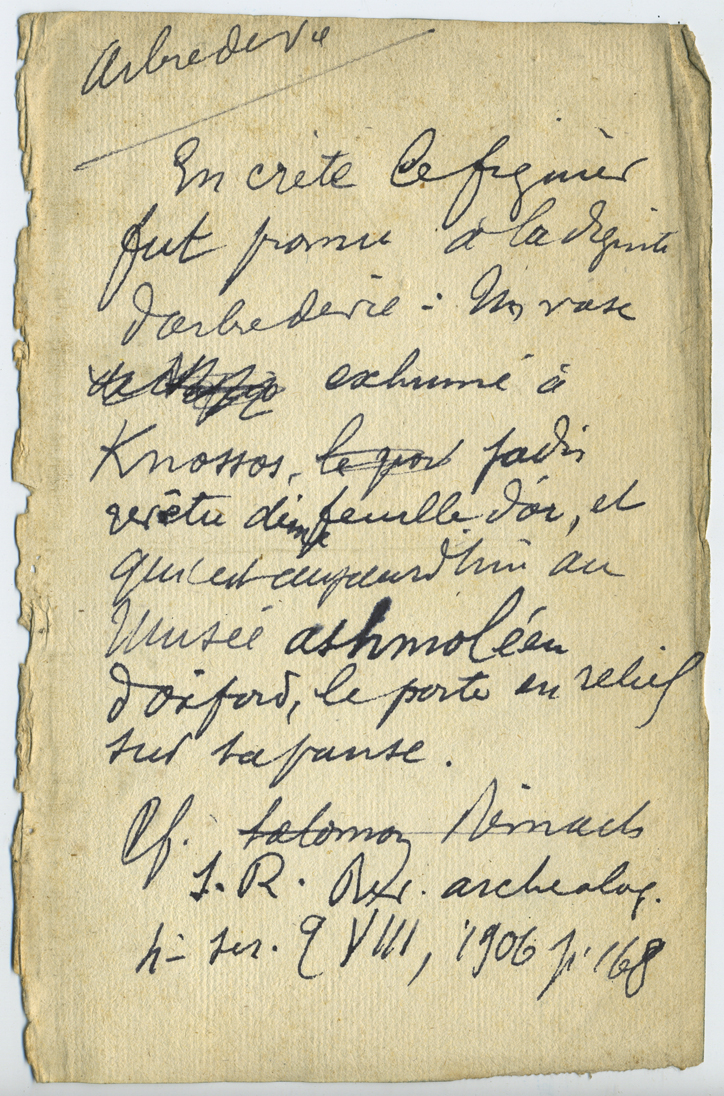 Arbre de vie
En crète le figuier
fut promu à la dignité
d'arbre de vie : Un vase
exhumé à
Knossos, le quel jadis
revêtu d'une feuille d'or, et
qui est aujourd'hui au
Musée ashmoléen
d'oxford, le porte en relief
sur sa panse.
Cf. Salomon Reinach
S. R. Rev. archeolog.
4- ser. VIII, 1906 p. 168